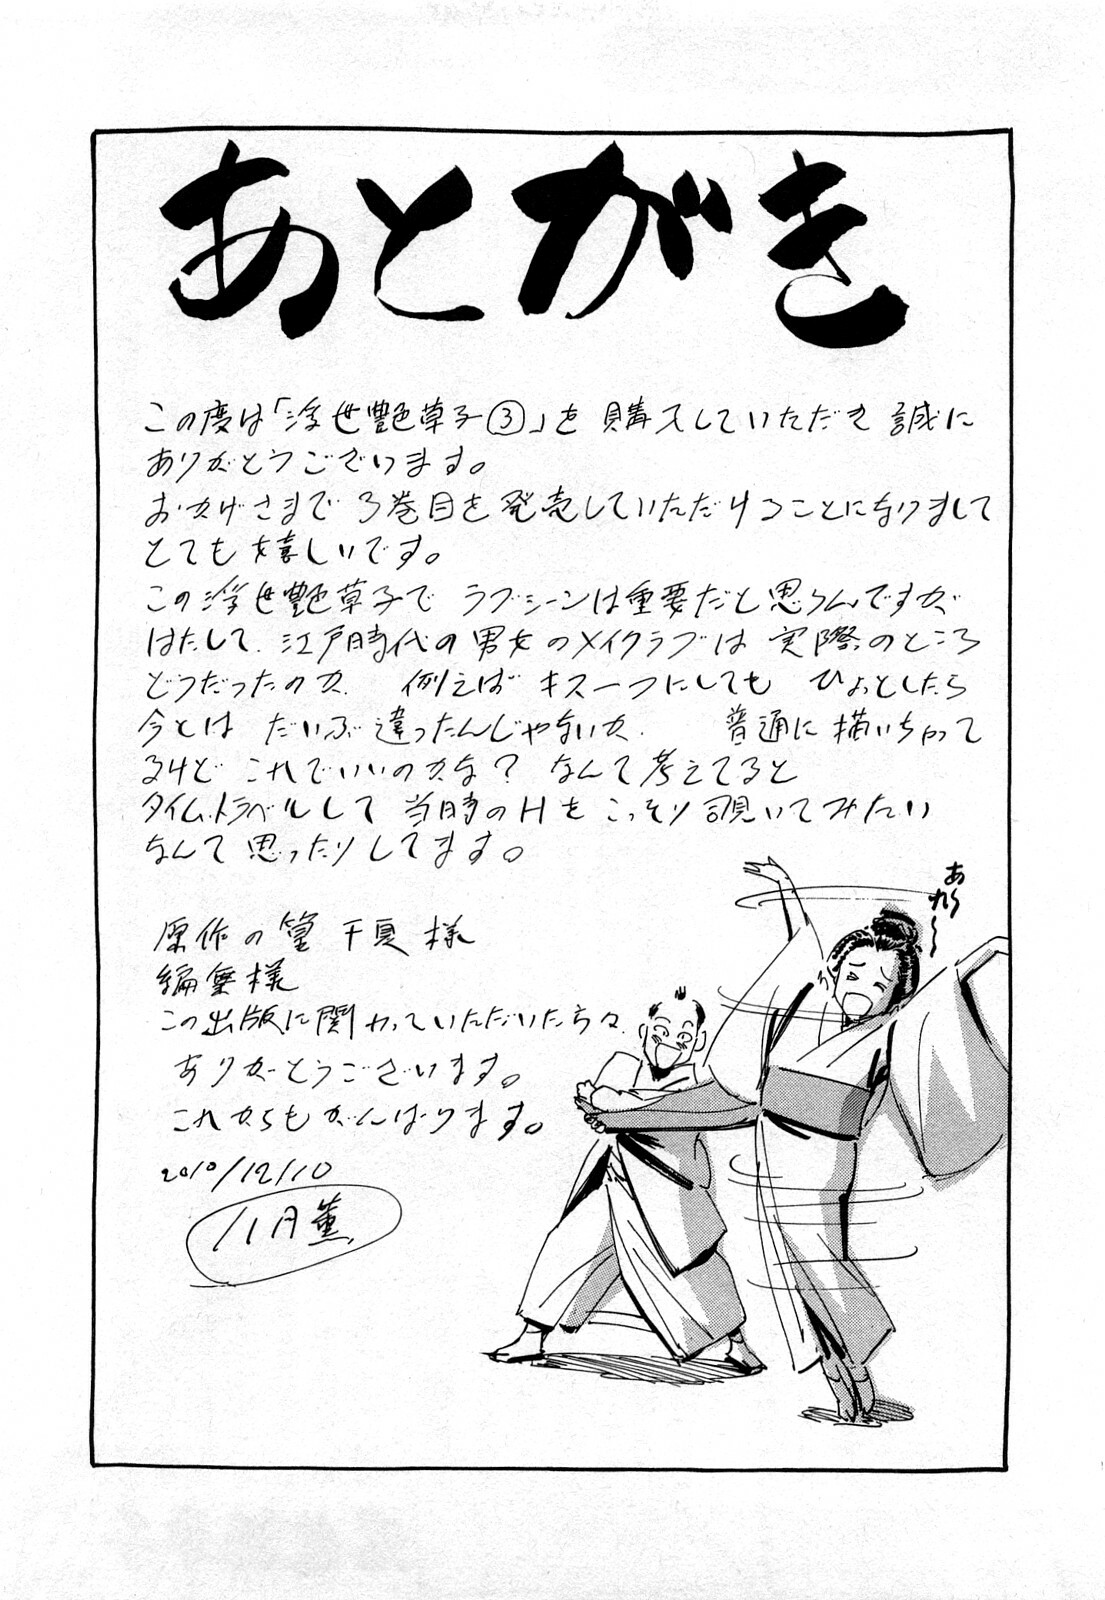 あとがき
この度は「浮世艶草子③」を購入していただき誠に
ありがとうございます。
おかげさまで3巻目を発売していただけることになりまして
とても嬉しいです。
この浮世艶草子でラブシーンは重要だと思うんですが
はたして、江戸時代の男女のメイクラブは実際のところ
どうだったのか、例えばキス一つにしてもひょっとしたら
今とはだいぶ違ったんじゃないか、普通に描いちゃって
るけどこれでいいのかな?なんて考えてると
タイム・トラベルして当時のHをこっそり覗いてみたい
なんて思ったりしてます。
あれ〜
原作の篁千夏様
編集様
この出版に関わっていただいた方々、
ありがとうございます。
これからもがんばります。
2010/12/10
八月薫